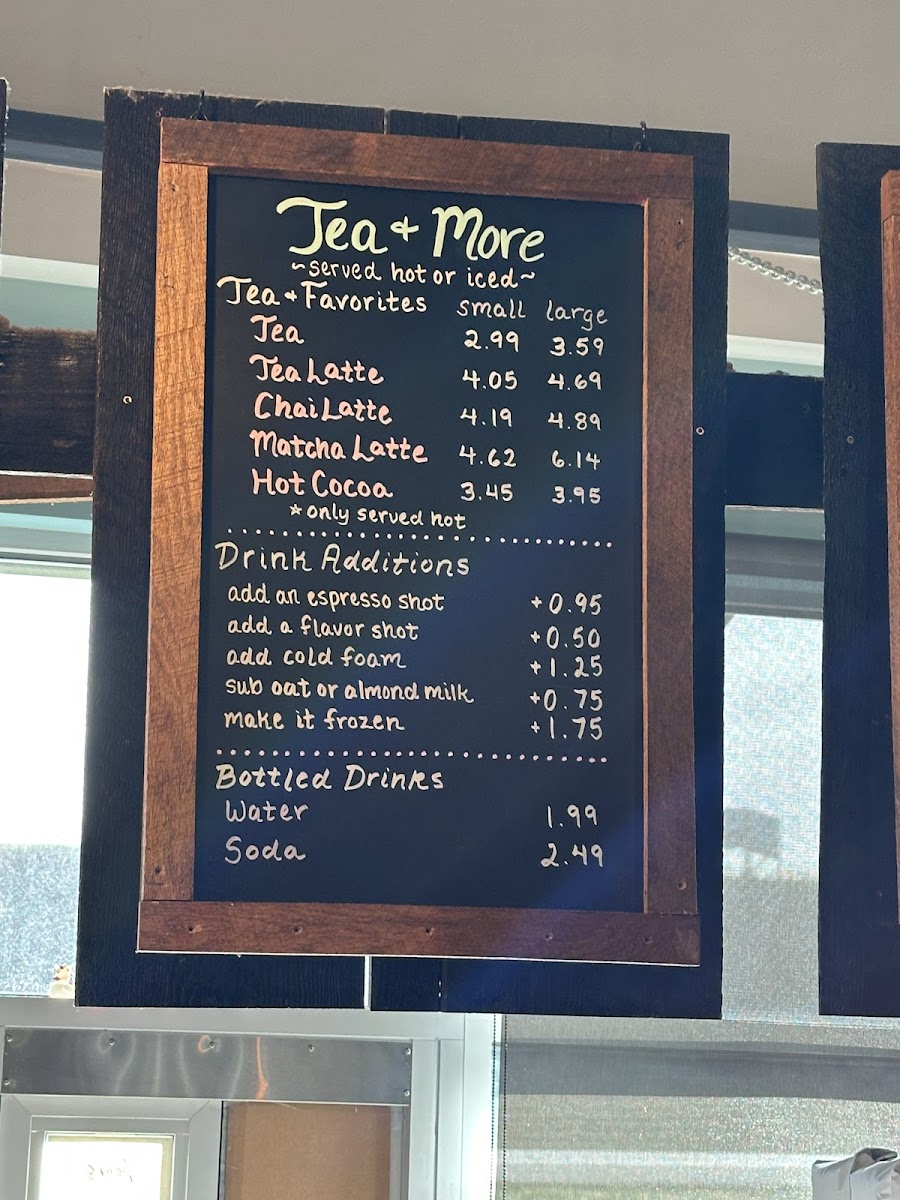 Tea + More
~served hot or iced~
Tea + Favorites small large
Tea 2.99 3.59
Tea Latte 4.05 4.69
Chai Latte 4.19 4.89
Matcha Latte 4.62 6.14
Hot Cocoa 3.45 3.95
*only served hot
Drink Additions
add an espresso shot +0.95
add a flavor shot +0.50
add cold foam +1.25
sub oat or almond milk +0.75
make it frozen +1.75
Bottled Drinks
Water 1.99
Soda 2.49